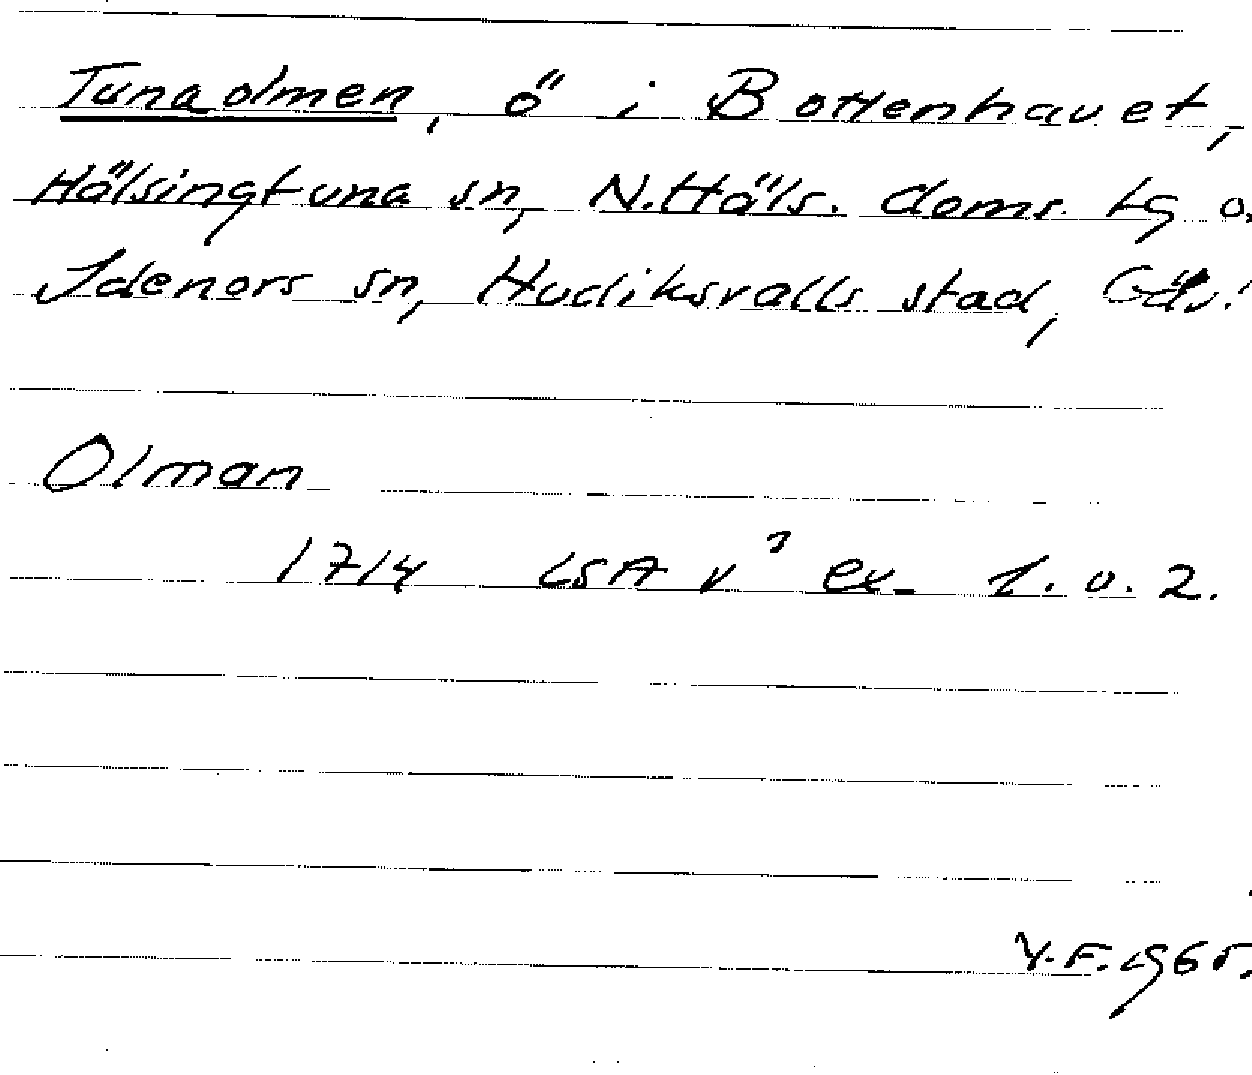 Tunaolmen, ö i Bottenhavet,
Hälsingtuna sn, N. Häls. doms. tg o.
Idenors sn, Hudiksvalls stad, Gäv.
Olman
1714 LSA V³ ex. 1. o. 2.
Y.F. 1965.